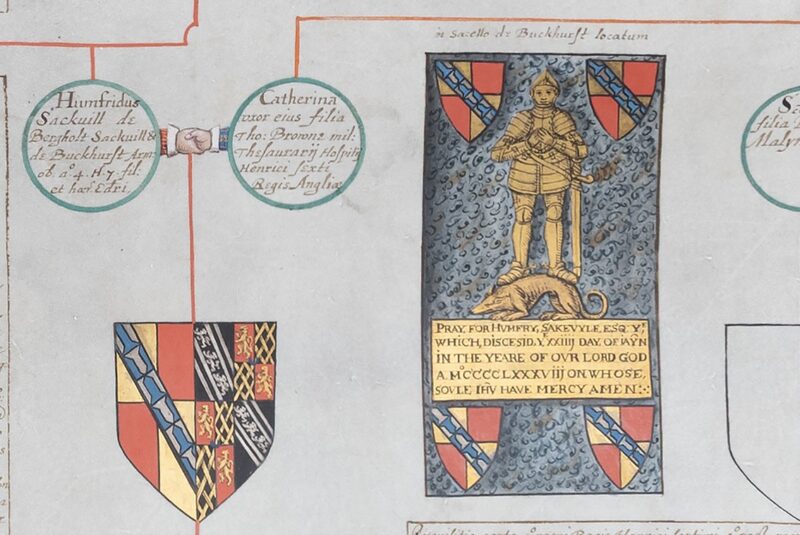 in sacello de Buckhurst locatum
Humfridus
Sackuill de
Bergholt Sackuill &
de Buckhurst Arm.
ob aº. 4. H. 7. fil.
et hær. Edri.
Catherina
vxor eius filia
Tho: Browne mil:
Thesaurarij Hospitij
Henrici sexti
Regis Angliæ
filia
Malyn
PRAY, FOR HVMFRY, SAKEVYLE, ESQ. Yᵗ
WHICH, DISCESID, Yᵉ XXIIIJ DAY. OF IAỸN
IN THE YEARE OF OVR LORD GOD
A Mº CCCCLXXXVIIJ ON, WHOSE,
SOVLE IHV HAVE MERCY AMEN: